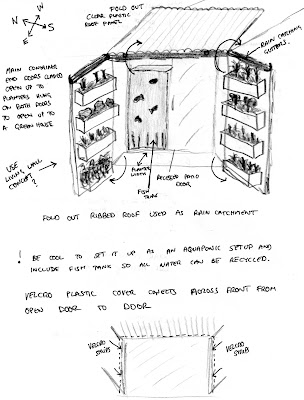 FOLD OUT
CLEAR PLASTIC
ROOF PANEL
N
W
S
E
RAIN CATCHING
GUTTERS.
MAIN CONTAINER
END DOORS CLOSED
OPEN UP TO
PLANTERS HUNG
ON BOTH DOORS
TO OPEN UP TO
A GREEN HOUSE
USE
LIVING WALL
CONCEPT
?
FISH
TANK
RECESSED PATIO
DOOR
FOLD OUT RIBBED ROOF USED AS RAIN CATCHMENT
! BE COOL TO SET IT UP AS AN AQUAPONIC SETUP AND
INCLUDE FISH TANK SO ALL WATER CAN BE RECYCLED.
VELCRO PLASTIC COVER CONECTS ACROSS FRONT FROM
OPEN DOOR TO DOOR
VELCRO
STRIPS
VELCRO
STRIPS